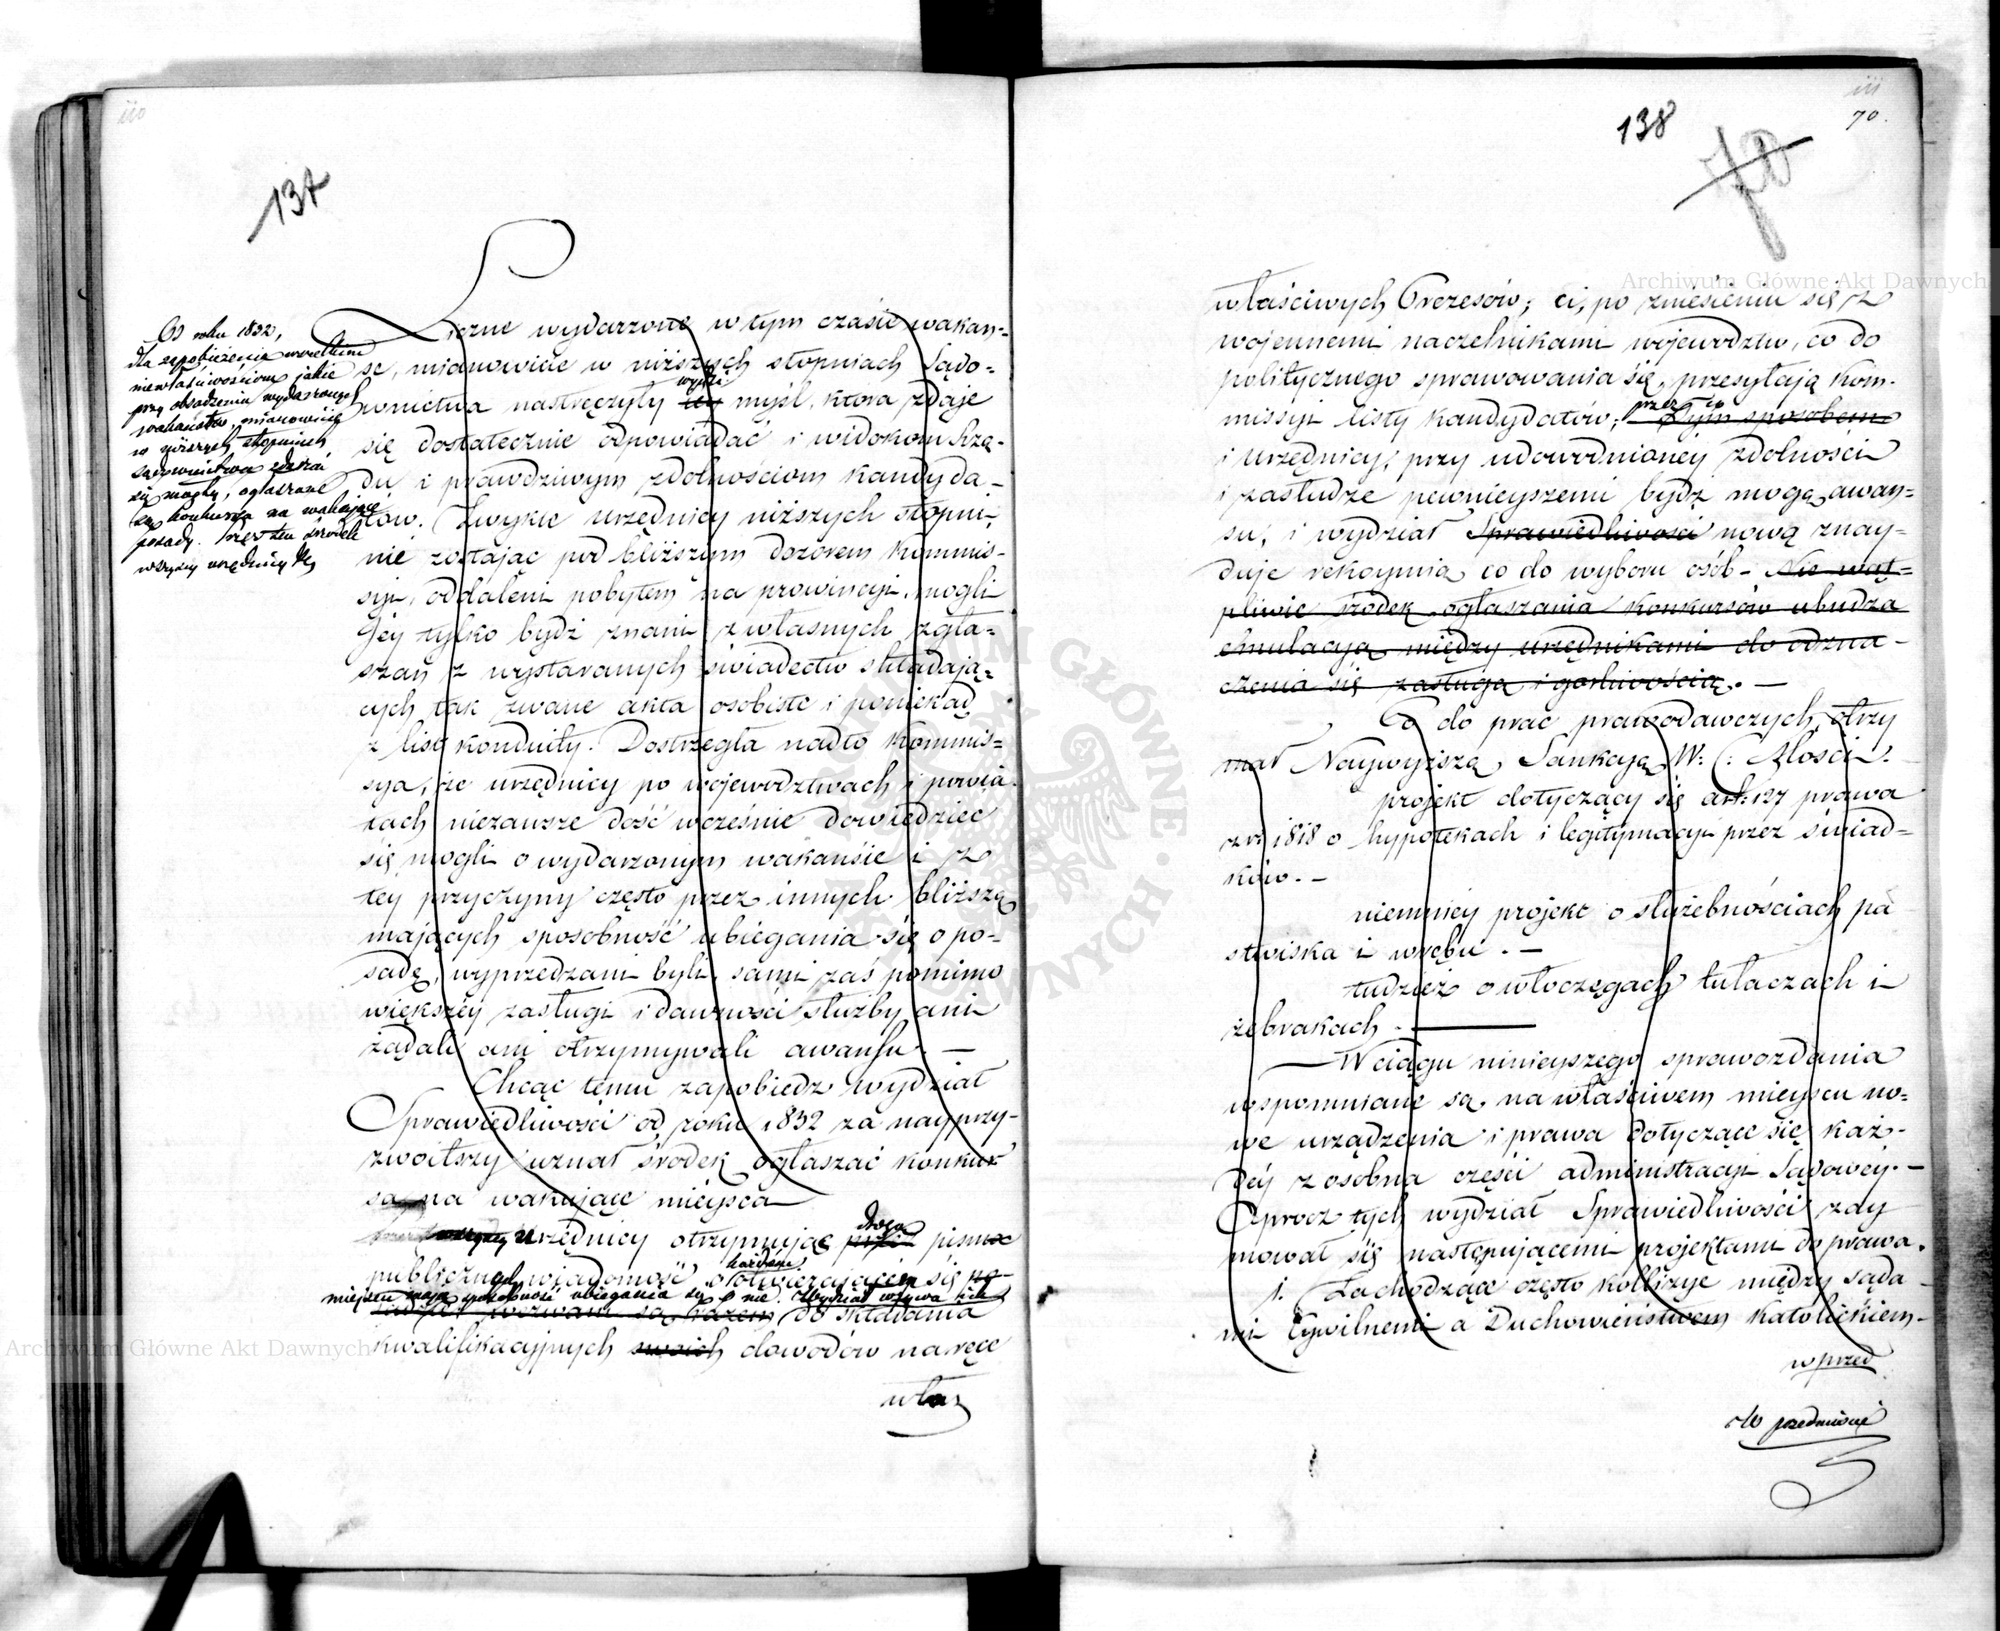 110
137
Od roku 1832,
dla zapobieżenia wszelkim
niewłaściwościom jakie
przy obsadzeniu wydarzonych
wakansów, mianowicie
w niższych stopniach
sądownictwa zdarzać
się mogły, ogłaszane
są konkursa na wakujące
posady. Przez ten środek
wszyscy urzędnicy
Liczne wydarzone w tym czasie wakan-
se, mianowicie w niższych stopniach Sądo-
wnictwa nastręczyły tey myśl, która zdaje
się dostatecznie odpowiadać i widokom Rzą-
du i prawdziwym zdolnościom kandyda-
tów. Zwykle urzędnicy niższych stopni,
nie zostając pod bliższym dozorem Kommis-
syi, oddaleni pobytem na prowincyi, mogli
Jey tylko bydź znani z własnych zgła-
szań z wystaranych świadectw składają-
cych tak zwane akta osobiste i poniekąd
z list konduity. Dostrzegła nadto Kommis-
sya, że urzędnicy po województwach i powia-
tach niezawsze dość wcześnie dowiedzieć
się mogli o wydarzonym wakansie i z
tey przyczyny często przez innych bliższą
mających sposobność ubiegania się o po-
sadę, wyprzedzani byli, sami zaś pomimo
większey zasługi i dawności służby ani
żądali ani otrzymywali awansu. —
Chcąc temu zapobiedz wydział
Sprawiedliwości od roku 1832 za nayprzy-
zwoitszy uznał środek ogłaszać konkur
sa na wakujące mieysca
drogą
Urzędnicy otrzymując przez pisma
każdém
publiczne wiadomość o otwierającém się po-
miejscu mają sposobność ubiegania się o nie. Wydział wzywa ich
wezwani są razem do składania
kwalifikacyjnych swoich dowodów na ręce
właś
111
70.
138
70
właściwych Prezesów; ci, po zniesieniu się z
wojennemi naczelnikami województw, co do
politycznego sprawowania się, przesyłają Kom-
przez co
missyi listy kandydatów; Tym sposobem
i urzędnicy, przy udowodnioney zdolności
i zasłudze pewnieyszemi bydź mogą awan-
su, i wydział Sprawiedliwości nową znay-
duje rekoymią co do wyboru osób. Nie wąt-
pliwie środek ogłaszania konkursów ubudza
emulacyą między urzędnikami do odzna-
czenia się zasługą i gorliwością. —
Co do prac prawodawczych, otrzy
mał Naywyższą Sankcyą W: C: Mości.
projekt dotyczący się art: 127 prawa
z r. 1818 o hypotekach i legitymacyi przez świad-
ków. —
niemniey projekt o służebnościach pa
stwiska i wrębu. —
tudzież o włóczęgach tułaczach i
żebrakach. —
— W ciągu ninieyszego sprawozdania
wspomniane są, na właściwem mieyscu no-
we urządzenia i prawa dotyczące się każ-
dey z osobna części administracyi Sądowey. —
Oprócz tych wydział Sprawiedliwości zay
mował się następującemi projektami do prawa.
1. Zachodzące często kollizye między sąda-
mi Cywilnemi a Duchowieństwem katolickiem
w przed
W przedmiocie
Archiwum Główne Akt Dawnych
Archiwum Główne Akt Dawnych
ARCHIWUM GŁÓWNE AKT DAWNYCH